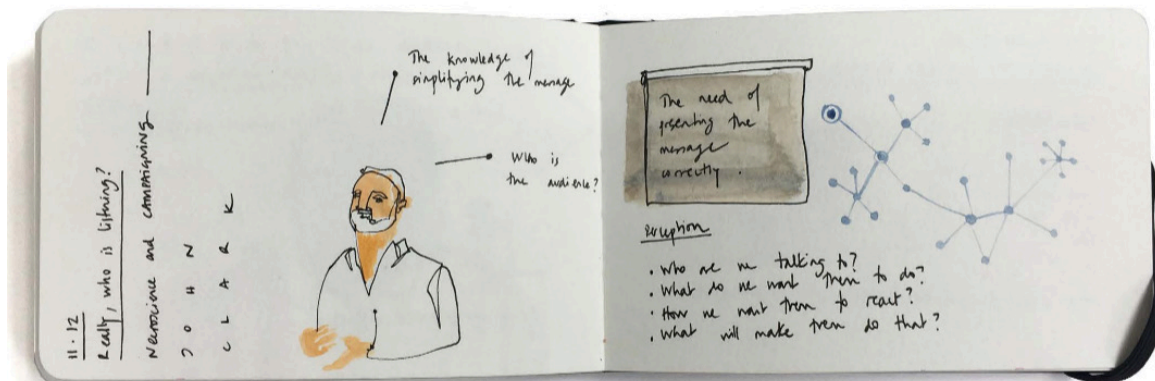 11.12
Really, who is listning?
Neuroscience and CAMPAIGNING
JOHN
CLARK
The knowledge of
simplifying the message
Who is
the audience?
The need of
presenting the
message
correctly.
Perception
• Who are we talking to?
• What do we want them to do?
• How we want them to react?
• What will make them do that?